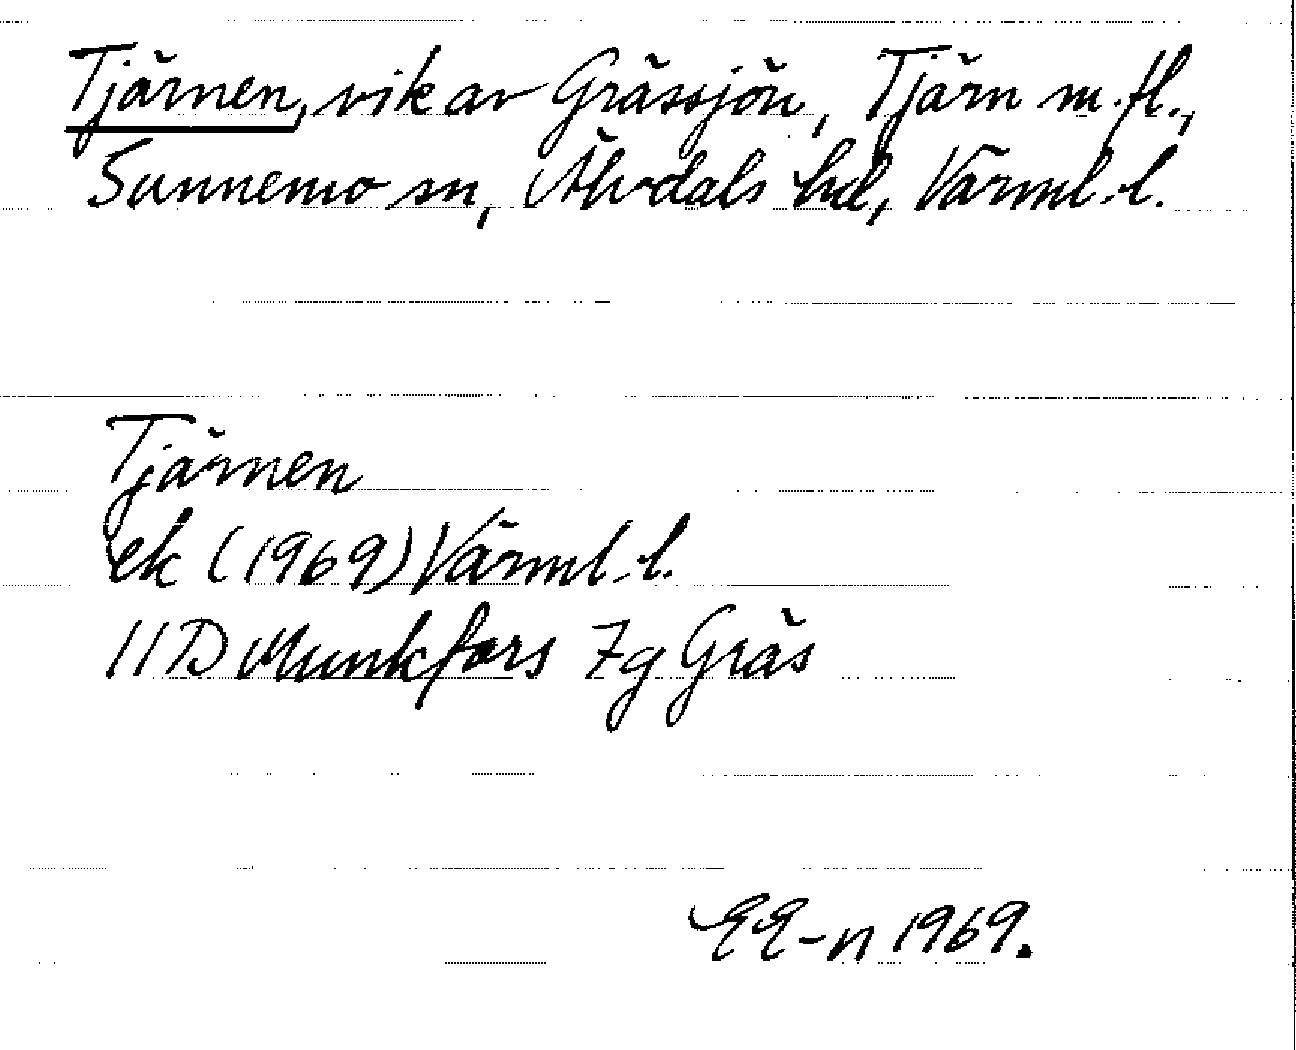 Tjärnen, vik av Grässjön, Tjärn m.fl.,
Sunnemo sn, Älvdals hd, Värml. l.
Tjärnen
ek (1969) Värml. l.
11D Munkfors 7g Gräs
EE-n 1969.